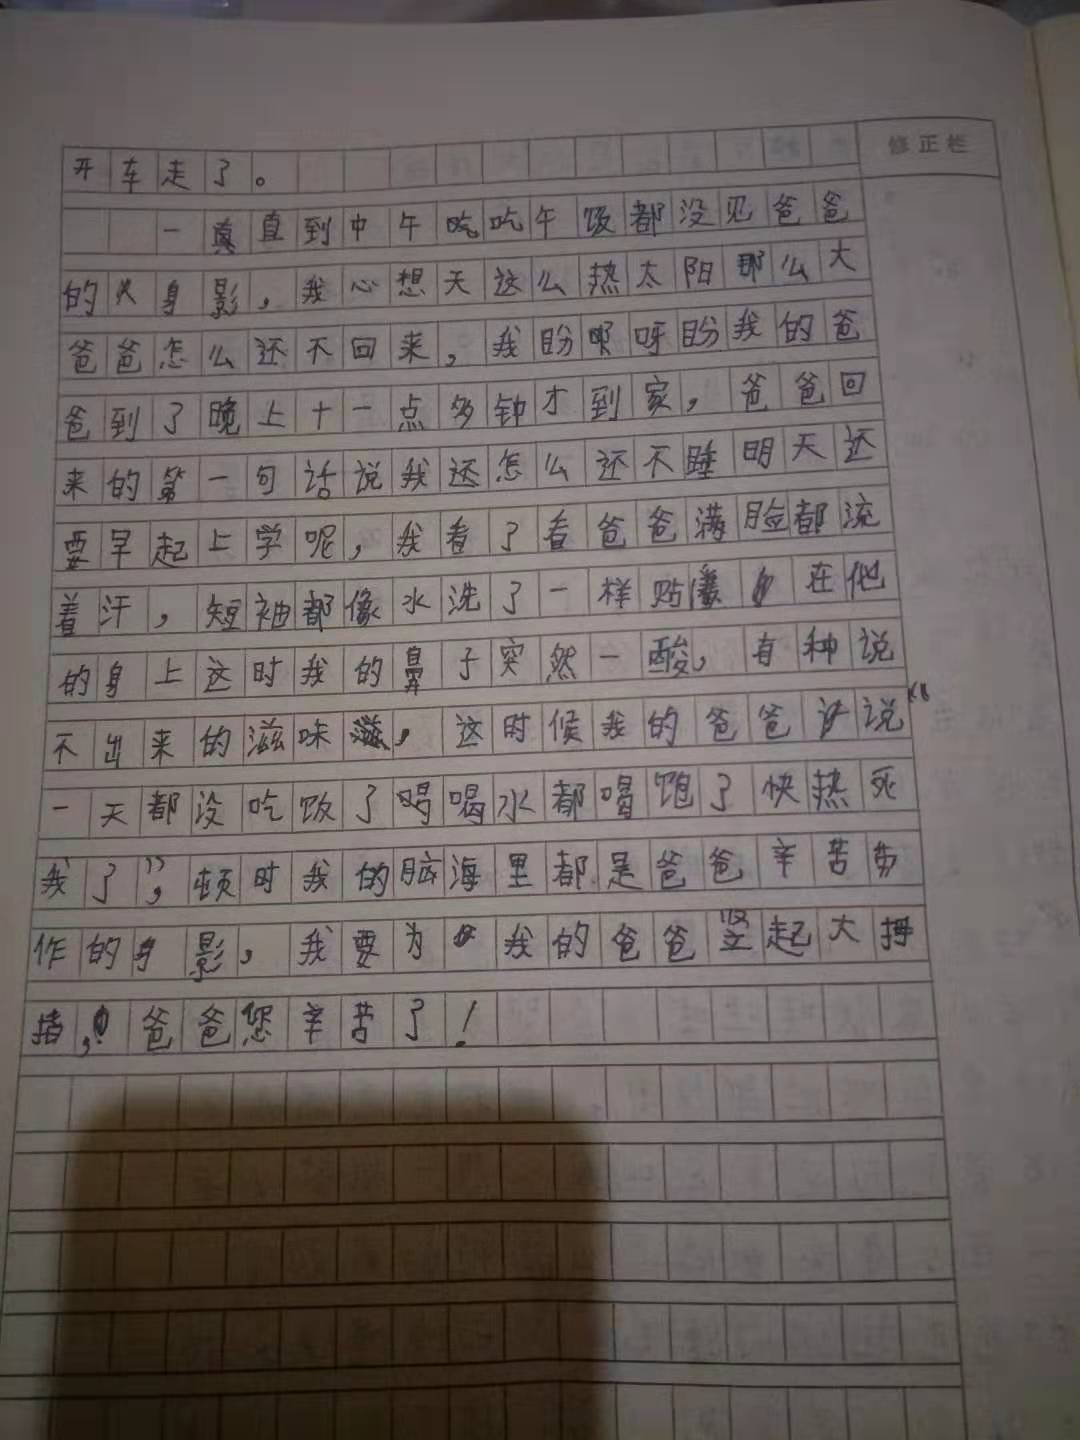 修正栏
开车走了。
一直到中午吃吃午饭都没见爸爸
的身影，我心想天这么热太阳那么大
爸爸怎么还不回来，我盼呀盼我的爸
爸到了晚上十一点多钟才到家，爸爸回
来的第一句话说我还怎么还不睡明天还
要早起上学呢，我看了看爸爸满脸都流
着汗，短袖都像水洗了一样贴在他
的身上这时我的鼻子突然一酸，有种说
不出来的滋味，这时候我的爸爸说“
一天都没吃饭了喝喝水都喝饱了快热死
我了”，顿时我的脑海里都是爸爸辛苦劳
作的身影，我要为我的爸爸竖起大拇
指，爸爸您辛苦了！